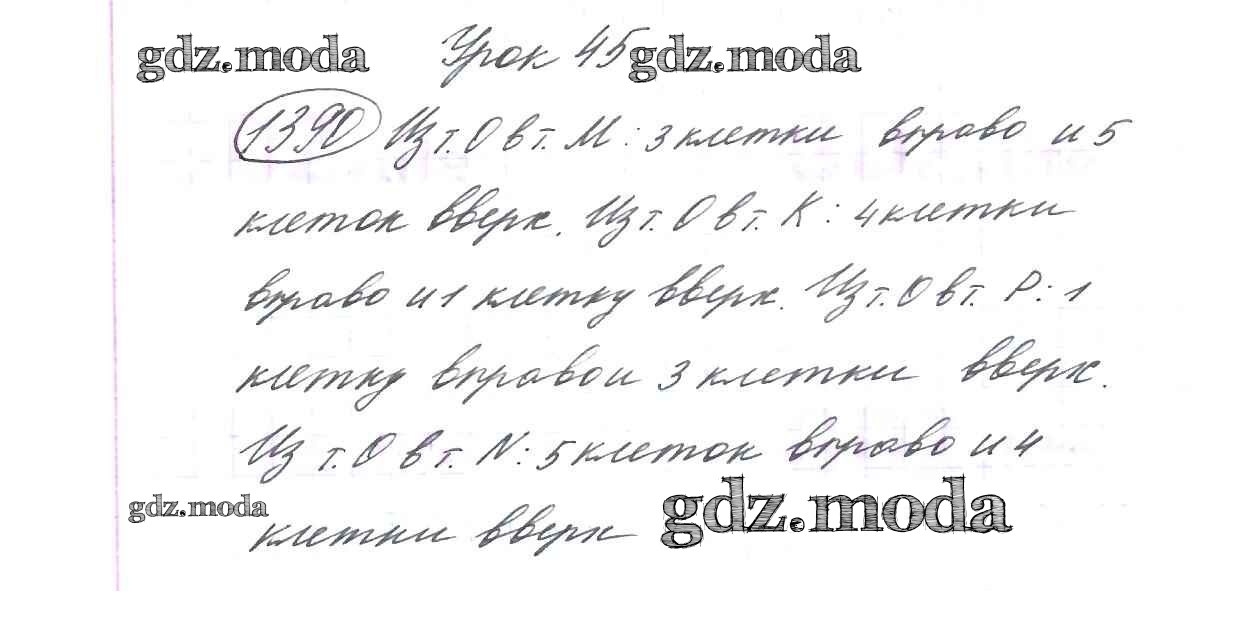 gdz.moda Урок 45 gdz.moda
1390 Из т. О в т. М: 3 клетки вправо и 5
клеток вверх. Из т. О в т. К: 4 клетки
вправо и 1 клетку вверх. Из т. О в т. Р: 1
клетку вправо и 3 клетки вверх.
Из т. О в т. N: 5 клеток вправо и 4
gdz.moda клетки вверх gdz.moda